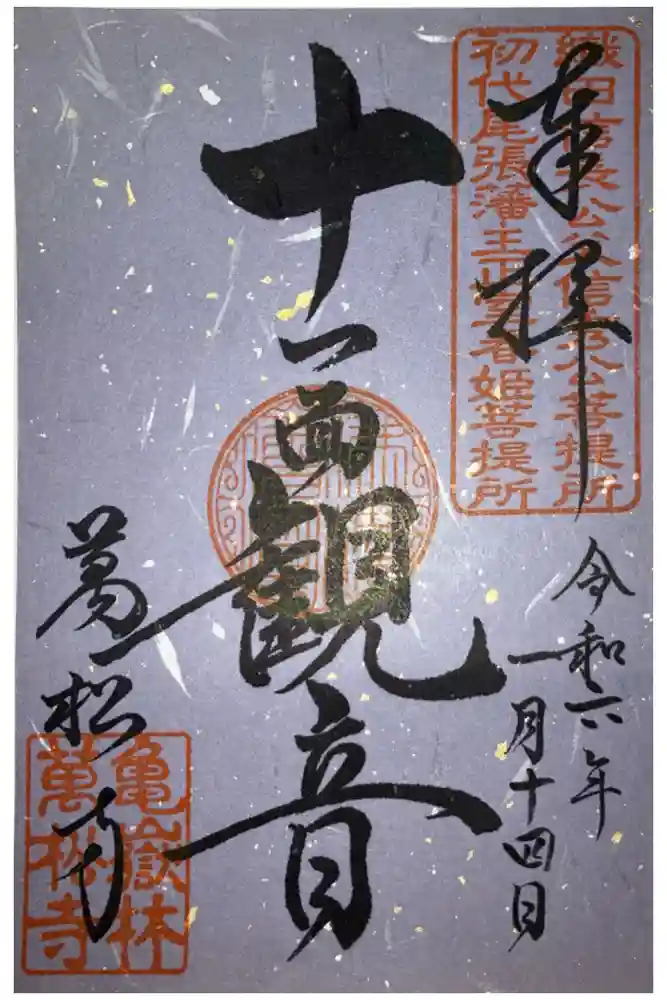 奉拝
織田信長公父信秀公菩提所
初代尾張藩主正室春姫菩提所
令和六年
一月十四日
十一面観音
萬松寺
亀嶽林
萬松寺